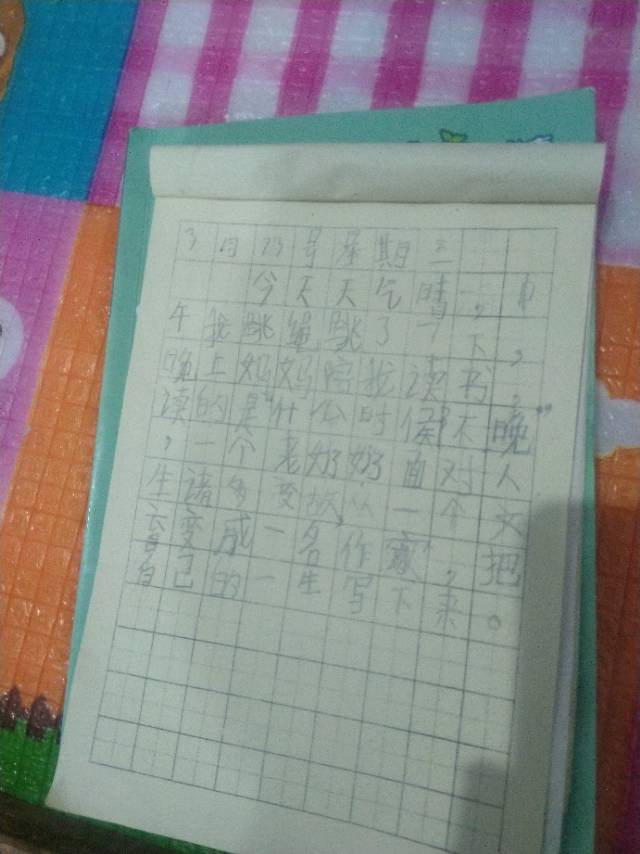 3月23号星期三
今天天气晴,中
午我跳绳跳了一下,
晚上妈妈陪我读书,
读的是“什么时候都不晚”
,一个老奶奶面对人
生诸多变故,从一个文
盲变成一名作家,把
自己的一生写下来。